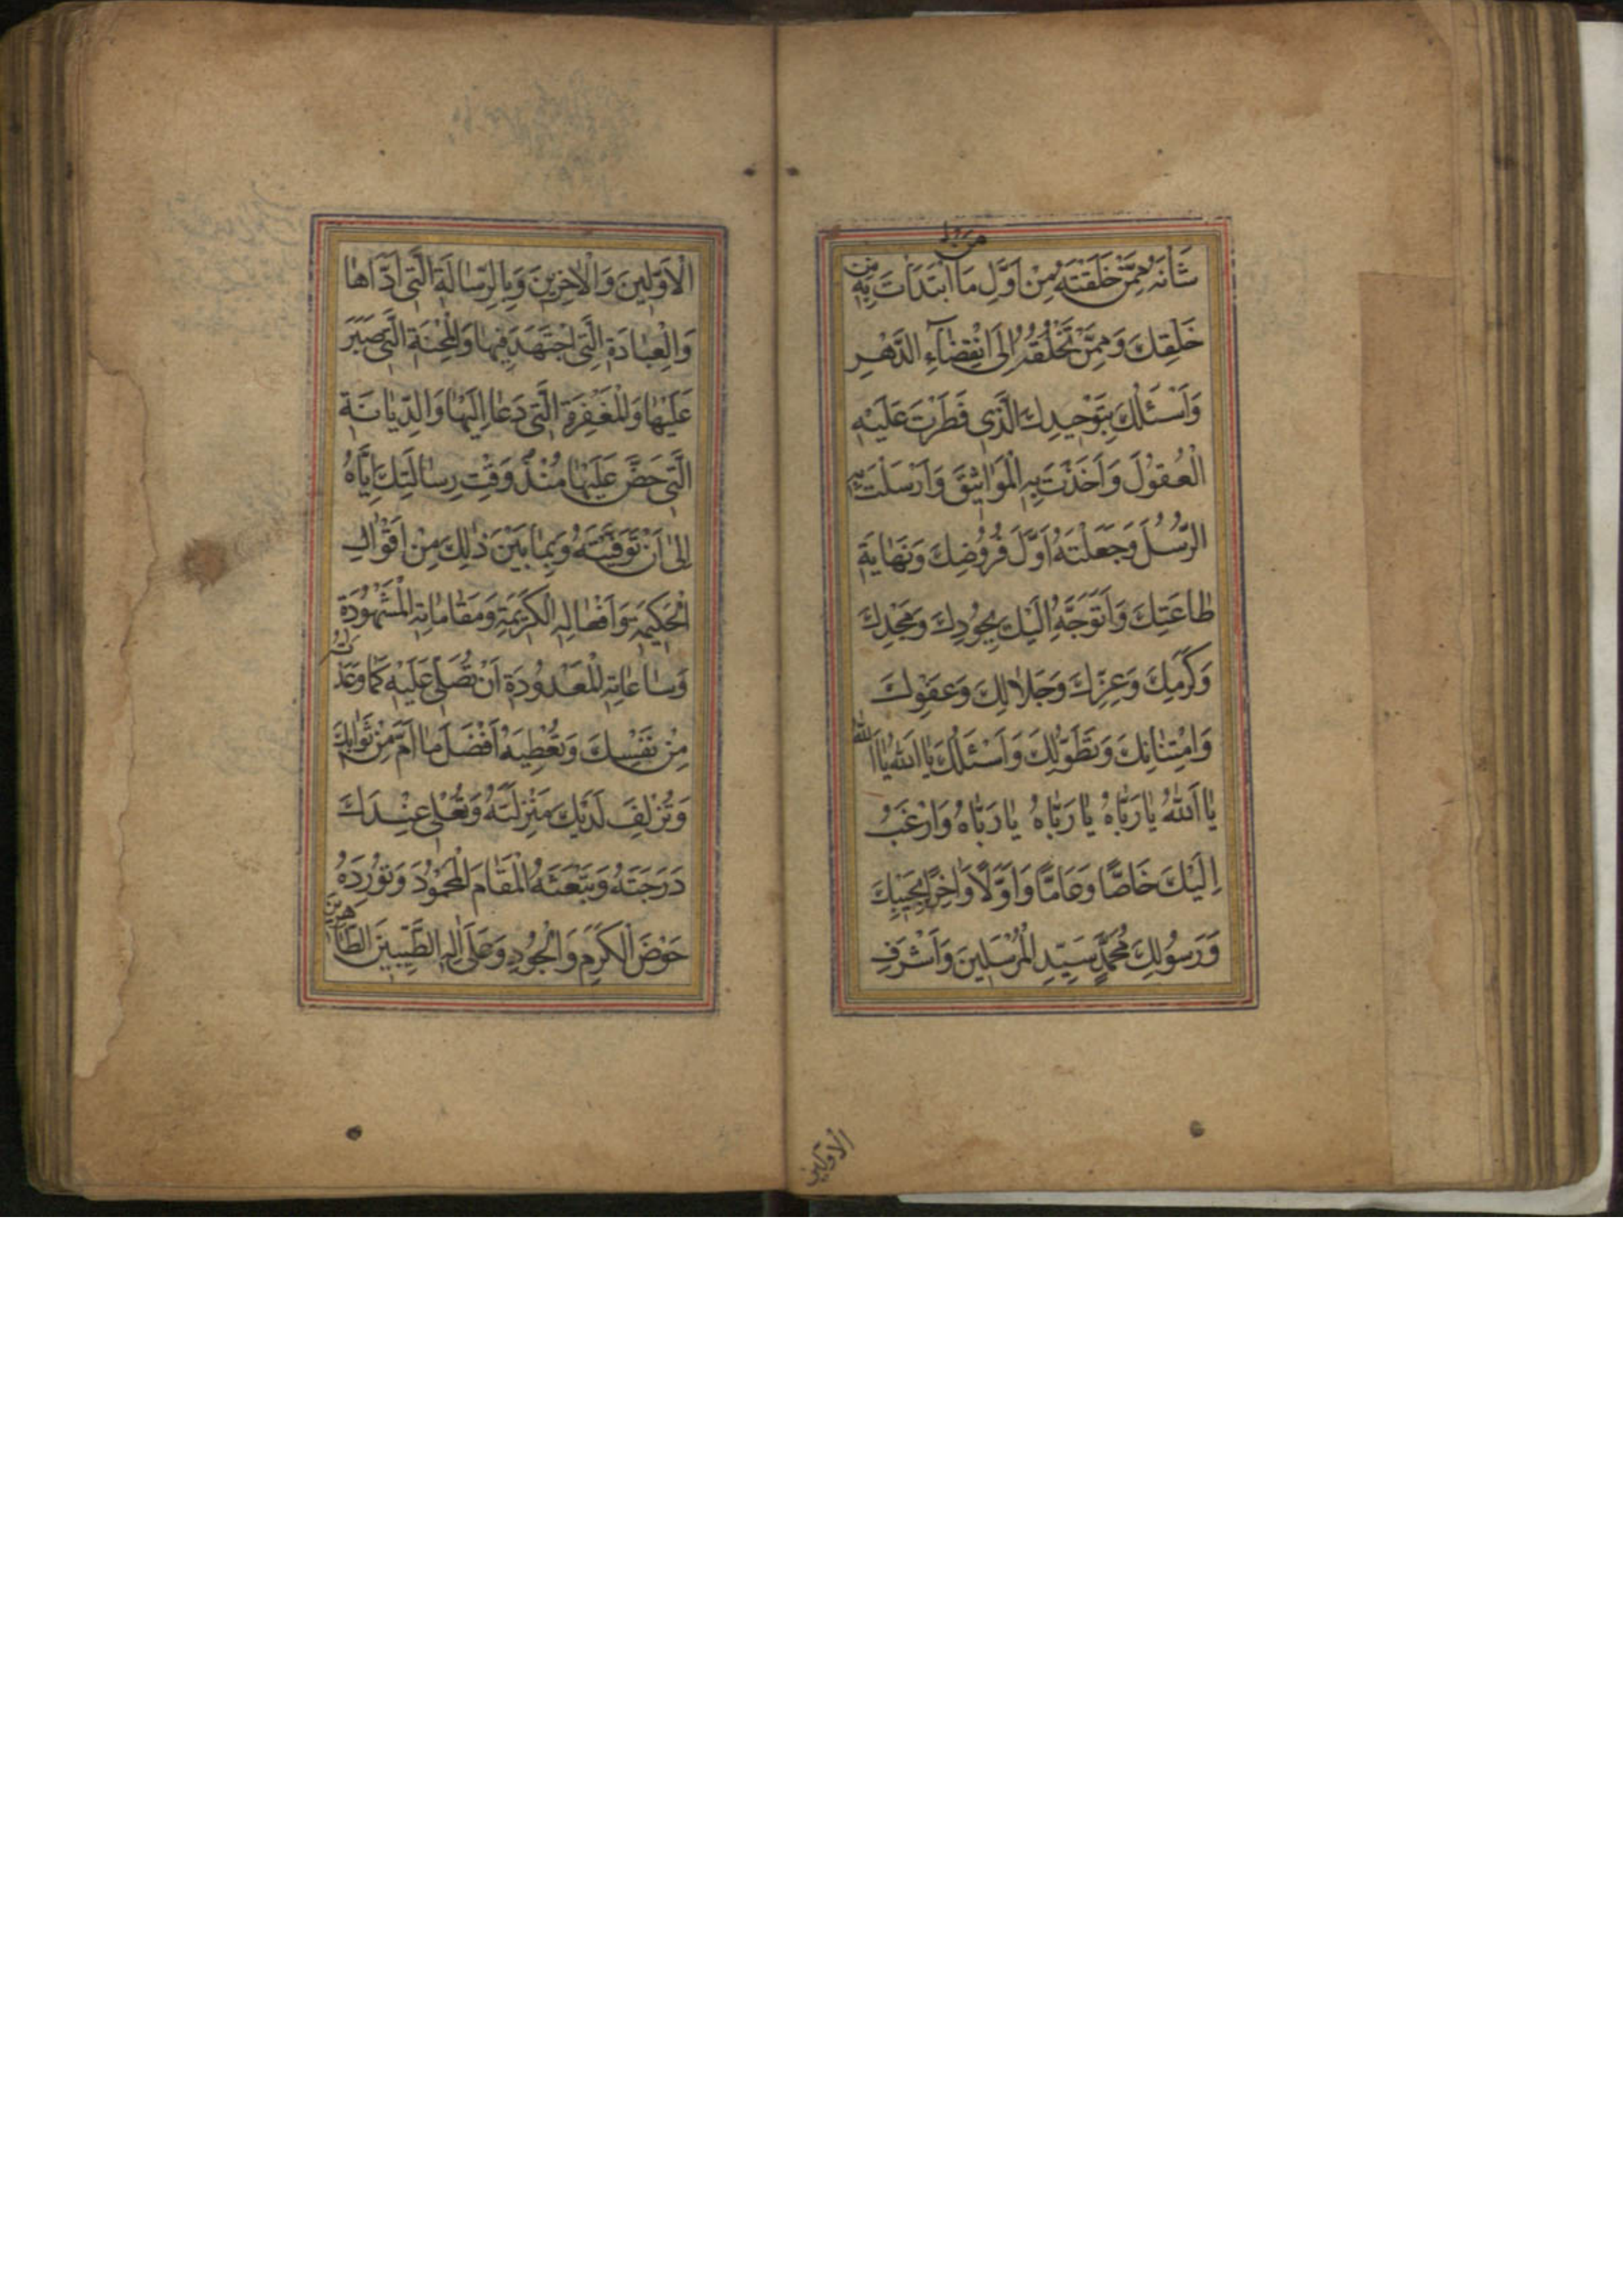 شَأْنَهُ مِمَّنْ خَلَقْتَهُ مِنْ اَوَّلِ مَا ابْتَدَاْتَ بِهِ مِنْ
خَلْقِكَ وَ مِمَّنْ تَخْلُقُهُ اِلَى انْقِضَاءِ الدَّهْرِ
وَ اَسْئَلُكَ بِتَوْحِيدِكَ الَّذِي فَطَرْتَ عَلَيْهِ
الْعُقُولَ وَ اَخَذْتَ بِهِ الْمَوَاثِيقَ وَ اَرْسَلْتَ بِهِ
الرُّسُلَ وَ جَعَلْتَهُ اَوَّلَ فُرُوضِكَ وَ نِهَايَةَ
طَاعَتِكَ وَ اَتَوَجَّهُ اِلَيْكَ بِجُودِكَ وَ مَجْدِكَ
وَ كَرَمِكَ وَ عِزِّكَ وَ جَلَالِكَ وَ عَفْوِكَ
وَ امْتِنَانِكَ وَ تَطَوُّلِكَ وَ اَسْئَلُكَ يَا اَللهُ يَا اَللهُ
يَا اَللهُ يَا رَبَّاهُ يَا رَبَّاهُ يَا رَبَّاهُ وَ اَرْغَبُ
اِلَيْكَ خَاصًّا وَ عَامًّا وَ اَوَّلًا وَ اٰخِرًا بِحَبِيبِكَ
وَ رَسُولِكَ مُحَمَّدٍ سَيِّدِ الْمُرْسَلِينَ وَ اَشْرَفِ
الاولين
الْاَوَّلِينَ وَ الْاٰخِرِينَ وَ بِالرِّسَالَةِ الَّتِي اَدَّاهَا
وَ الْعِبَادَةِ الَّتِي اجْتَهَدَ فِيهَا وَ الْمِحْنَةِ الَّتِي صَبَرَ
عَلَيْهَا وَ الْمَغْفِرَةِ الَّتِي دَعَا اِلَيْهَا وَ الدِّيَانَةِ
الَّتِي حَضَّ عَلَيْهَا مُنْذُ وَقْتِ رِسَالَتِكَ اِيَّاهُ
اِلٰى اَنْ تَوَفَّيْتَهُ وَ بِمَا بَيْنَ ذٰلِكَ مِنْ اَقْوَالِهِ
الْحَكِيمَةِ وَ اَفْعَالِهِ الْكَرِيمَةِ وَ مَقَامَاتِهِ الْمَشْهُودَةِ
وَ سَاعَاتِهِ الْمَعْدُودَةِ اَنْ تُصَلِّيَ عَلَيْهِ كَمَا وَعَدْتَهُ
مِنْ نَفْسِكَ وَ تُعْطِيَهُ اَفْضَلَ مَا اَمَّلَ مِنْ ثَوَابِكَ
وَ تُزْلِفَ لَدَيْكَ مَنْزِلَتَهُ وَ تُعْلِيَ عِنْدَكَ
دَرَجَتَهُ وَ تَبْعَثَهُ الْمَقَامَ الْمَحْمُودَ وَ تُورِدَهُ
حَوْضَ الْكَرَمِ وَ الْجُودِ وَ صَلَّى عَلٰى اٰلِهِ الطَّيِّبِينَ الطَّاهِرِينَ